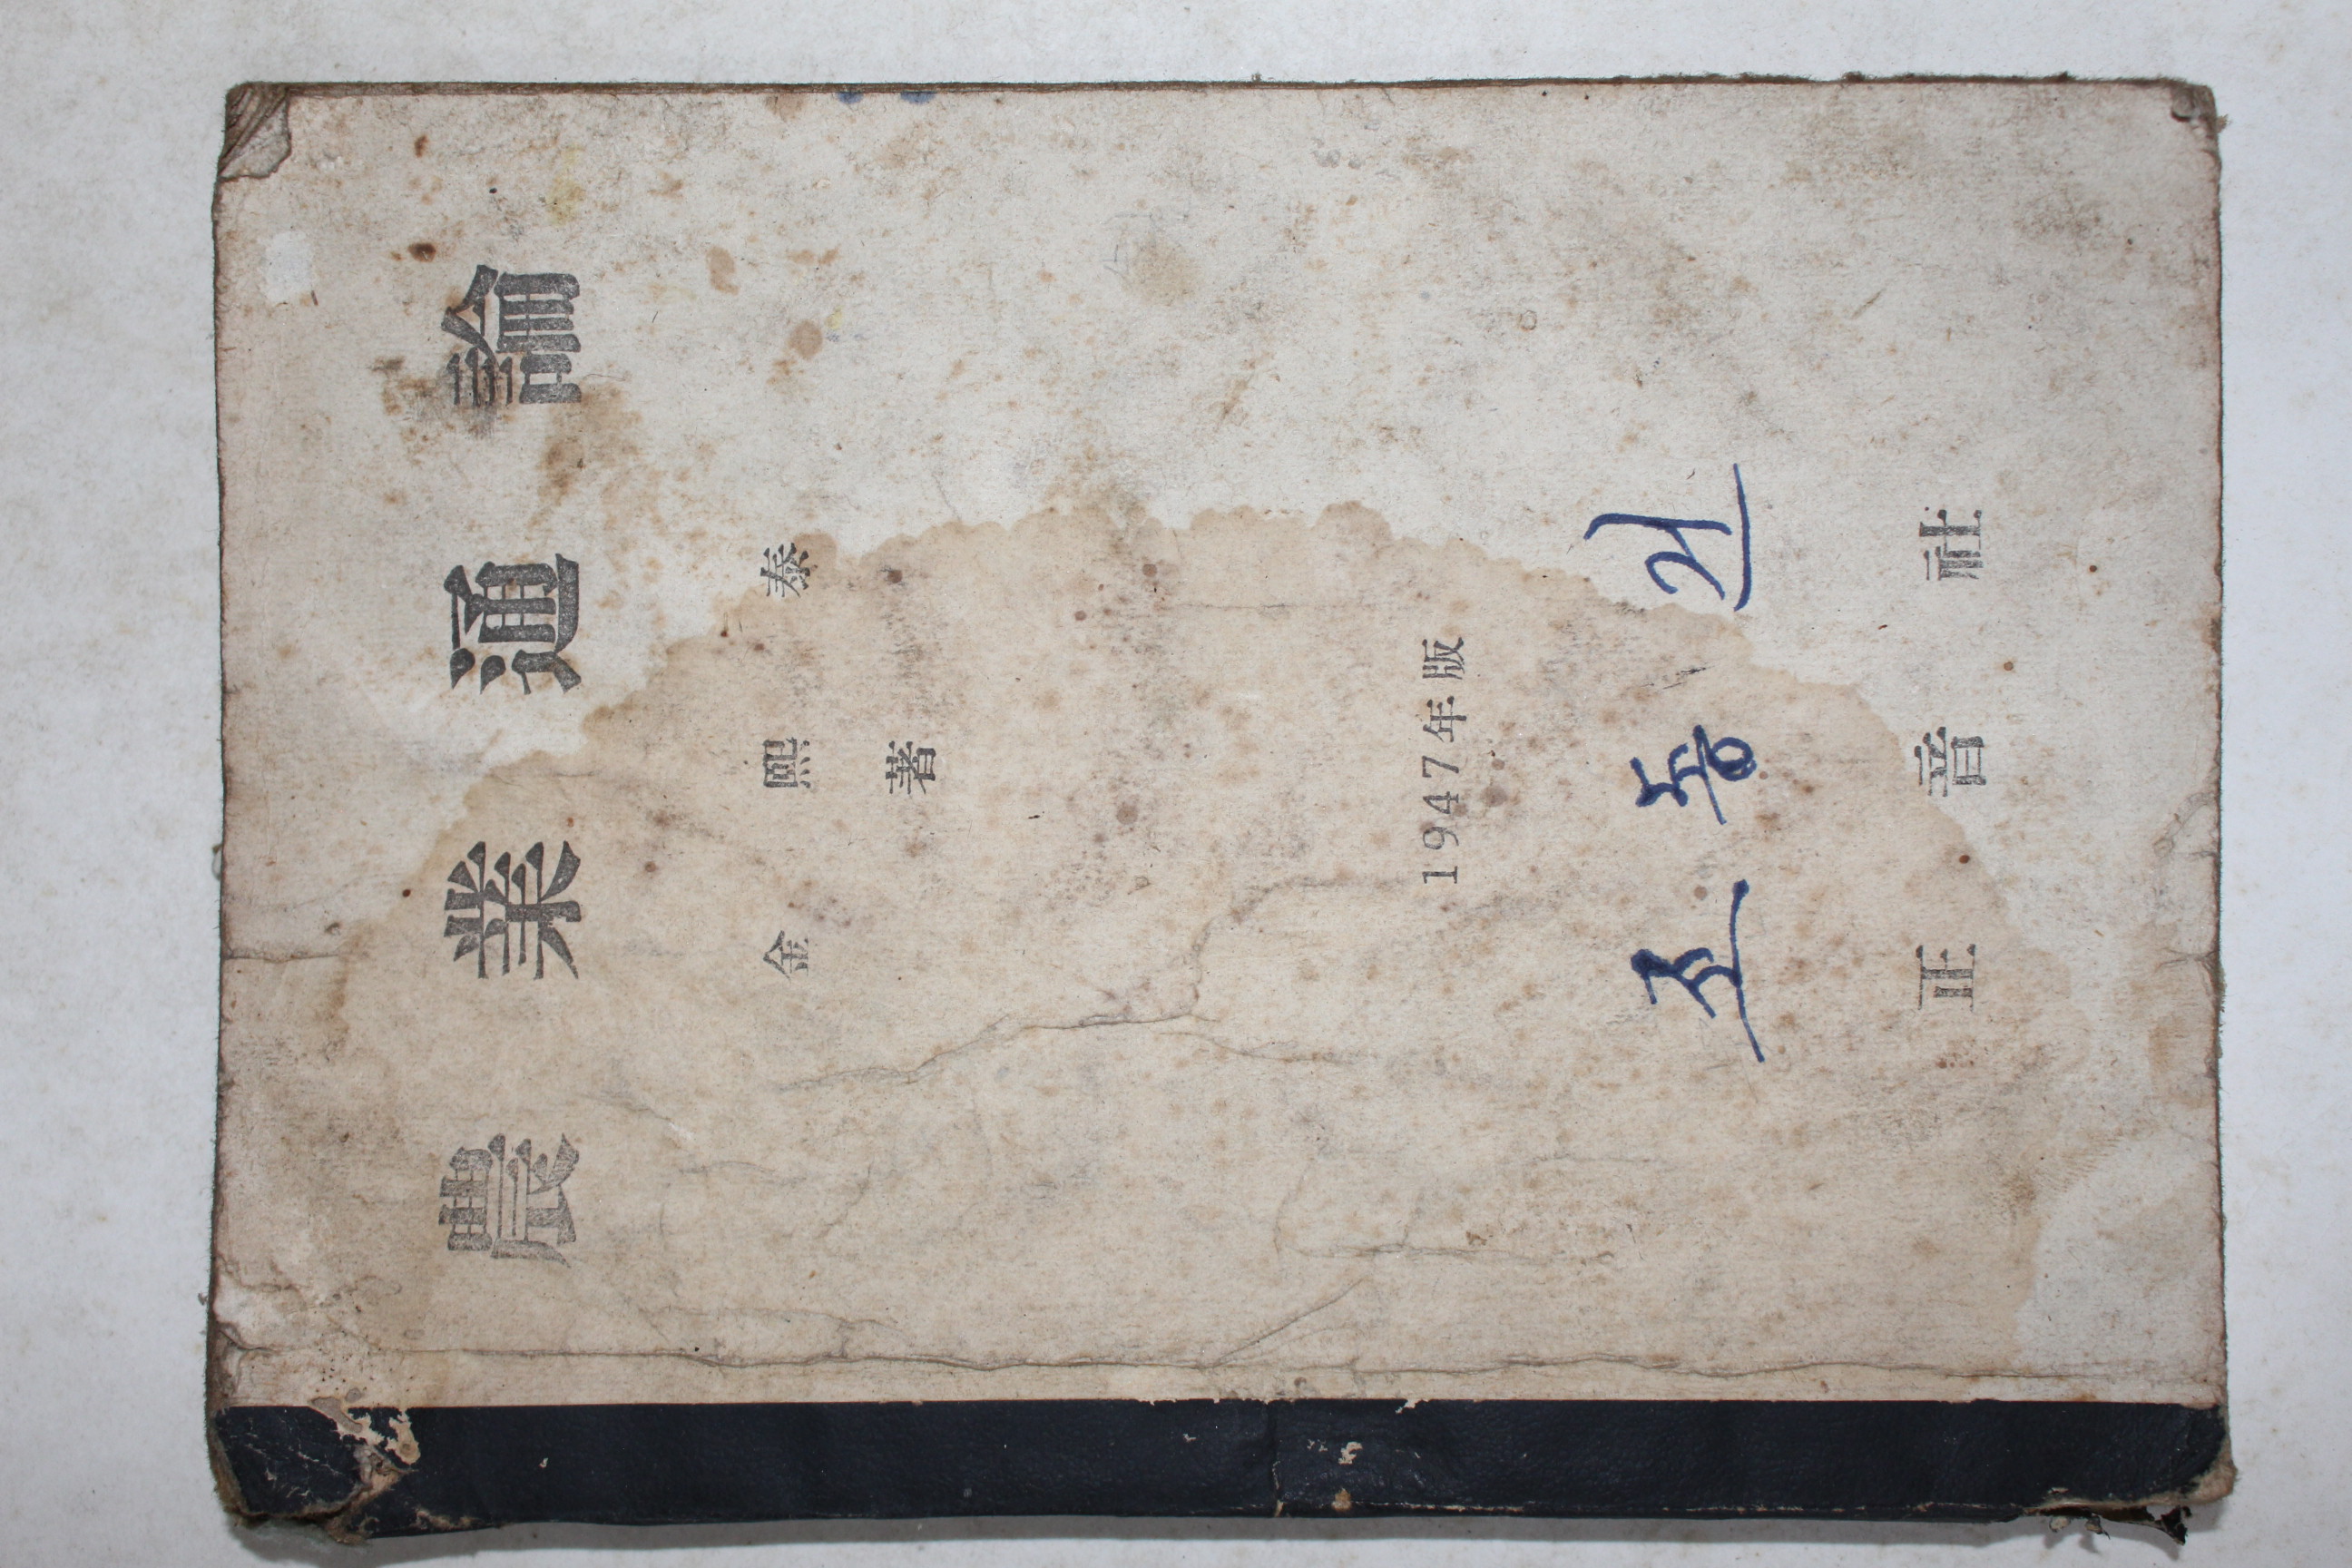 農業通論
金熙泰
著
1947年版
조동근
正音社